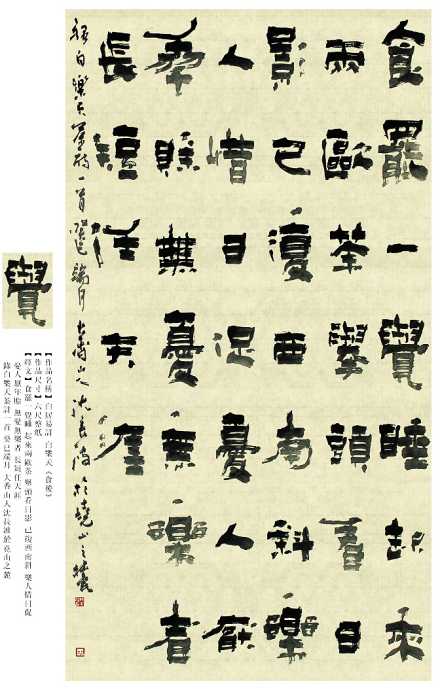 食罷一覺睡起來
兩甌茶舉頭看日
影已復西南斜樂
人惜日促憂人厭
年賒無憂無樂者
長短任生涯
錄白樂天茶詩一首 癸巳端月 大香山人沈長波於堯山之麓
覺
【作品名稱】白居易詩 白樂天《食後》
【作品尺寸】六尺整紙
【釋文】食罷一覺睡 起來兩甌茶 舉頭看日影 已復西南斜 樂人惜日促
憂人厭年賒 無憂無樂者 長短任生涯
錄白樂天茶詩一首 癸巳端月 大香山人沈長波於堯山之麓